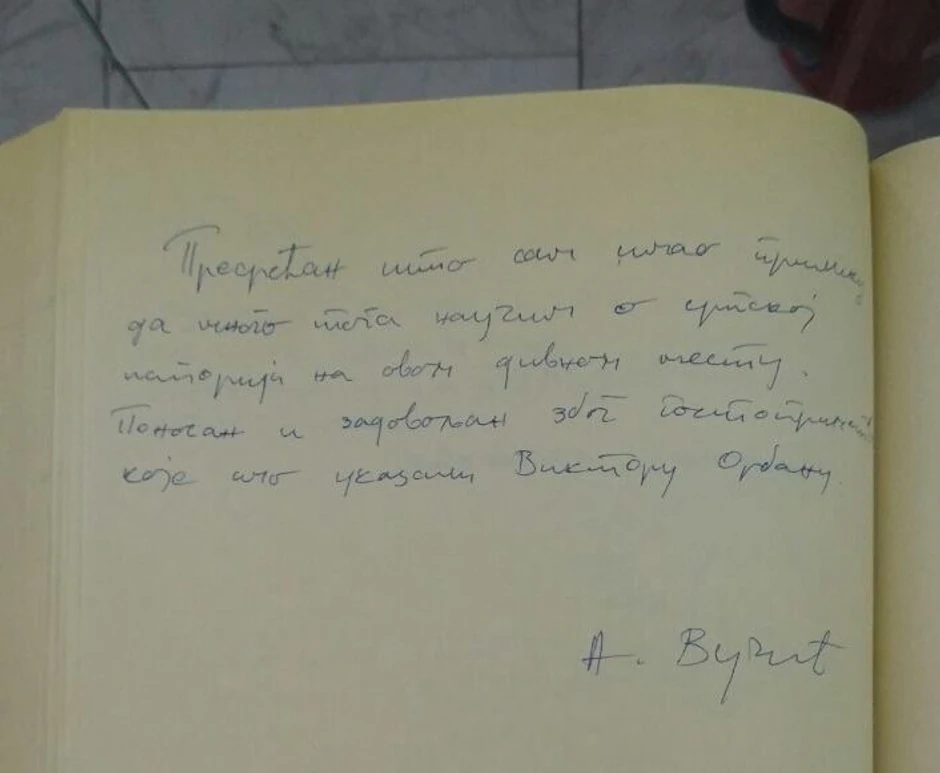 Пресрећан што сам имао прилику
да много тога научим о српској
историји на овом дивном месту.
Поносан и задовољан због гостопримства
које смо указали Виктору Орбану.
А. Вучић